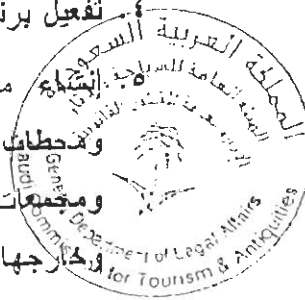 ٤. تفعيل برنـ
٥. إنشاء مـ
ومحطات
ومجمعات
وخارجها
المملكة العربية السعودية
الهيئة العامة للسياحة والآثار
General Department of Legal Affairs
Saudi Commission for Tourism & Antiquities